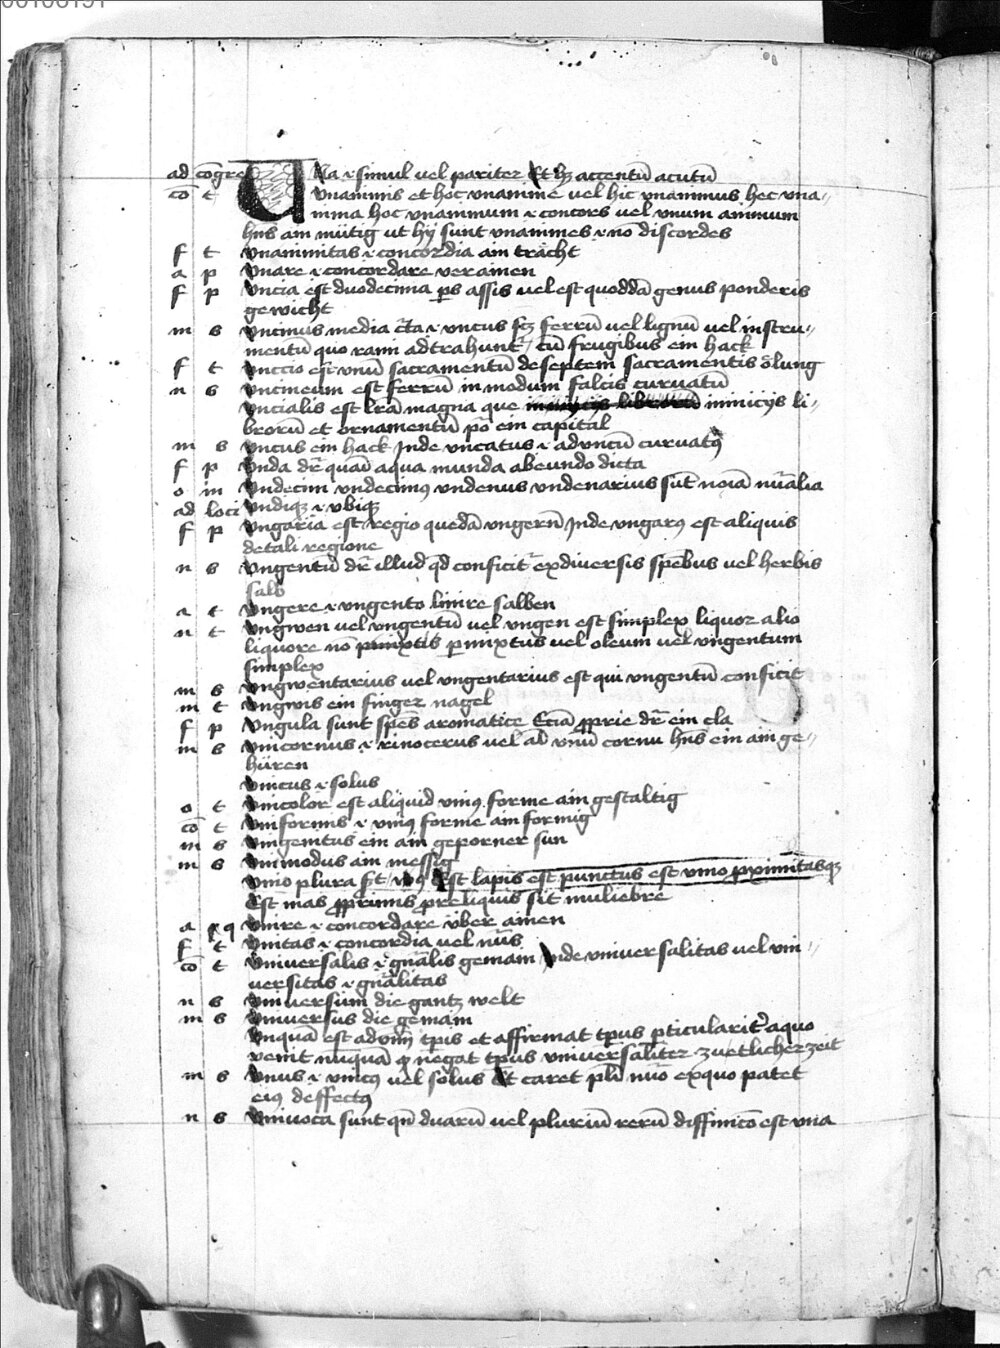 ad cōgre Una .i. simul vel pariter Et hꝫ accentū acutū
cō t Unanimis et hoc unanime vel hic unanimus hec una-
nima hoc unanimum .i. concors vel unum animum
hn̄s ain mütig ut hÿ sunt unanimes .i. nō discordes
f t Unanimitas .i. concordia ain trächt
a p Unare .i. concordare verainen
f p Uncia est duodecima ꝑs assis vel est quoddā genus ponderis
gewicht
m s Uncinus media cr̄ta .i. uncus sꝫ ferrū vel lignū vel instru-
mentū quo rami adtrahunt᷑ cū frugibus ein hack
f t Unccio est unū sacramentū de septem sacramentis ölung
n s Uncineum est ferrū in modum falcis curvatū
Uncialis est lr̄a magna que in inicijs li-
brorū et ornamentū pō ein capital
m s Uncus ein hack Inde uncatus .i. aduncū curvatꝰ
f p Unda dr̄ quasi aqua munda abeundo dicta
o in Undecim undecimꝰ undenus undenarius sūt noīa nūalia
ad loci Undiqꝫ .i. ubiqꝫ
f p Ungaria est regio quedā ungern̄ Inde ungarꝰ est aliquis
de tali regione
n s Ungentū dr̄ illud qd̄ conficit᷑ ex diversis spēbus vel herbis
salb
a t Ungere .i. ungento linire salben
n t Ungwen vel ungentū vel ungen est simplex liquor alio
liquore nō pmixtis permixtus vel oleum vel ungentum
simplex
m s Ungwentarius vel ungentarius est qui ungentū conficit
m t Ungwis ein finger nagel
f p Ungula sunt spēs aromatice Eciā ꝓprie dr̄ ein cla
m s Unicornus .i. rinocerus vel aīl unū cornu hn̄s ein ain ge-
hüren
Unicus .i. solus
o t Unicolor est aliquid uniꝰ forme ain gestaltig
cō t Uniformis .i. uniꝰ forme ain formig
m s Unigenitus ein ain geporner sun
m s Unimodus ain messig
Unio plura sꝫt Est lapis est punctus est unio ꝓximitasqꝫ
Est mas ꝓprimis pre liquis sit muliebre
a q Unire .i. concordare über ainen
f t Unitas .i. concordia vel nūs
cō t Universalis .i. gn̄alis gemain Inde universalitas vel uni-
versitas .i. gn̄alitas
n s Universum die gantz welt
m s Universus die gemain
Unquā est adverbiū tp̄is et affirmat tp̄us pticularit᷑ a quo
venit nūquā qd̄ negat tp̄us universaliter zu etlicher zeit
m s Unus .i. unicꝰ vel solus Et caret plī nūo ex quo patet
eiꝰ deffectꝰ
n s Univoca sunt qn̄ duarū vel pluriū rerū diffinicō est una